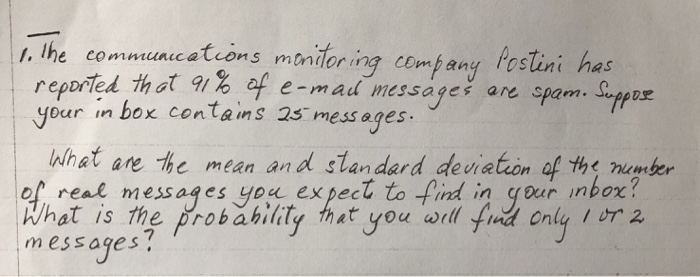 1. The communications monitoring company Postini has
reported that 91% of e-mail messages are spam. Suppose
your in box contains 25 messages.
What are the mean and standard deviation of the number
of real messages you expect to find in your inbox?
What is the probability that you will find only 1 or 2
messages?